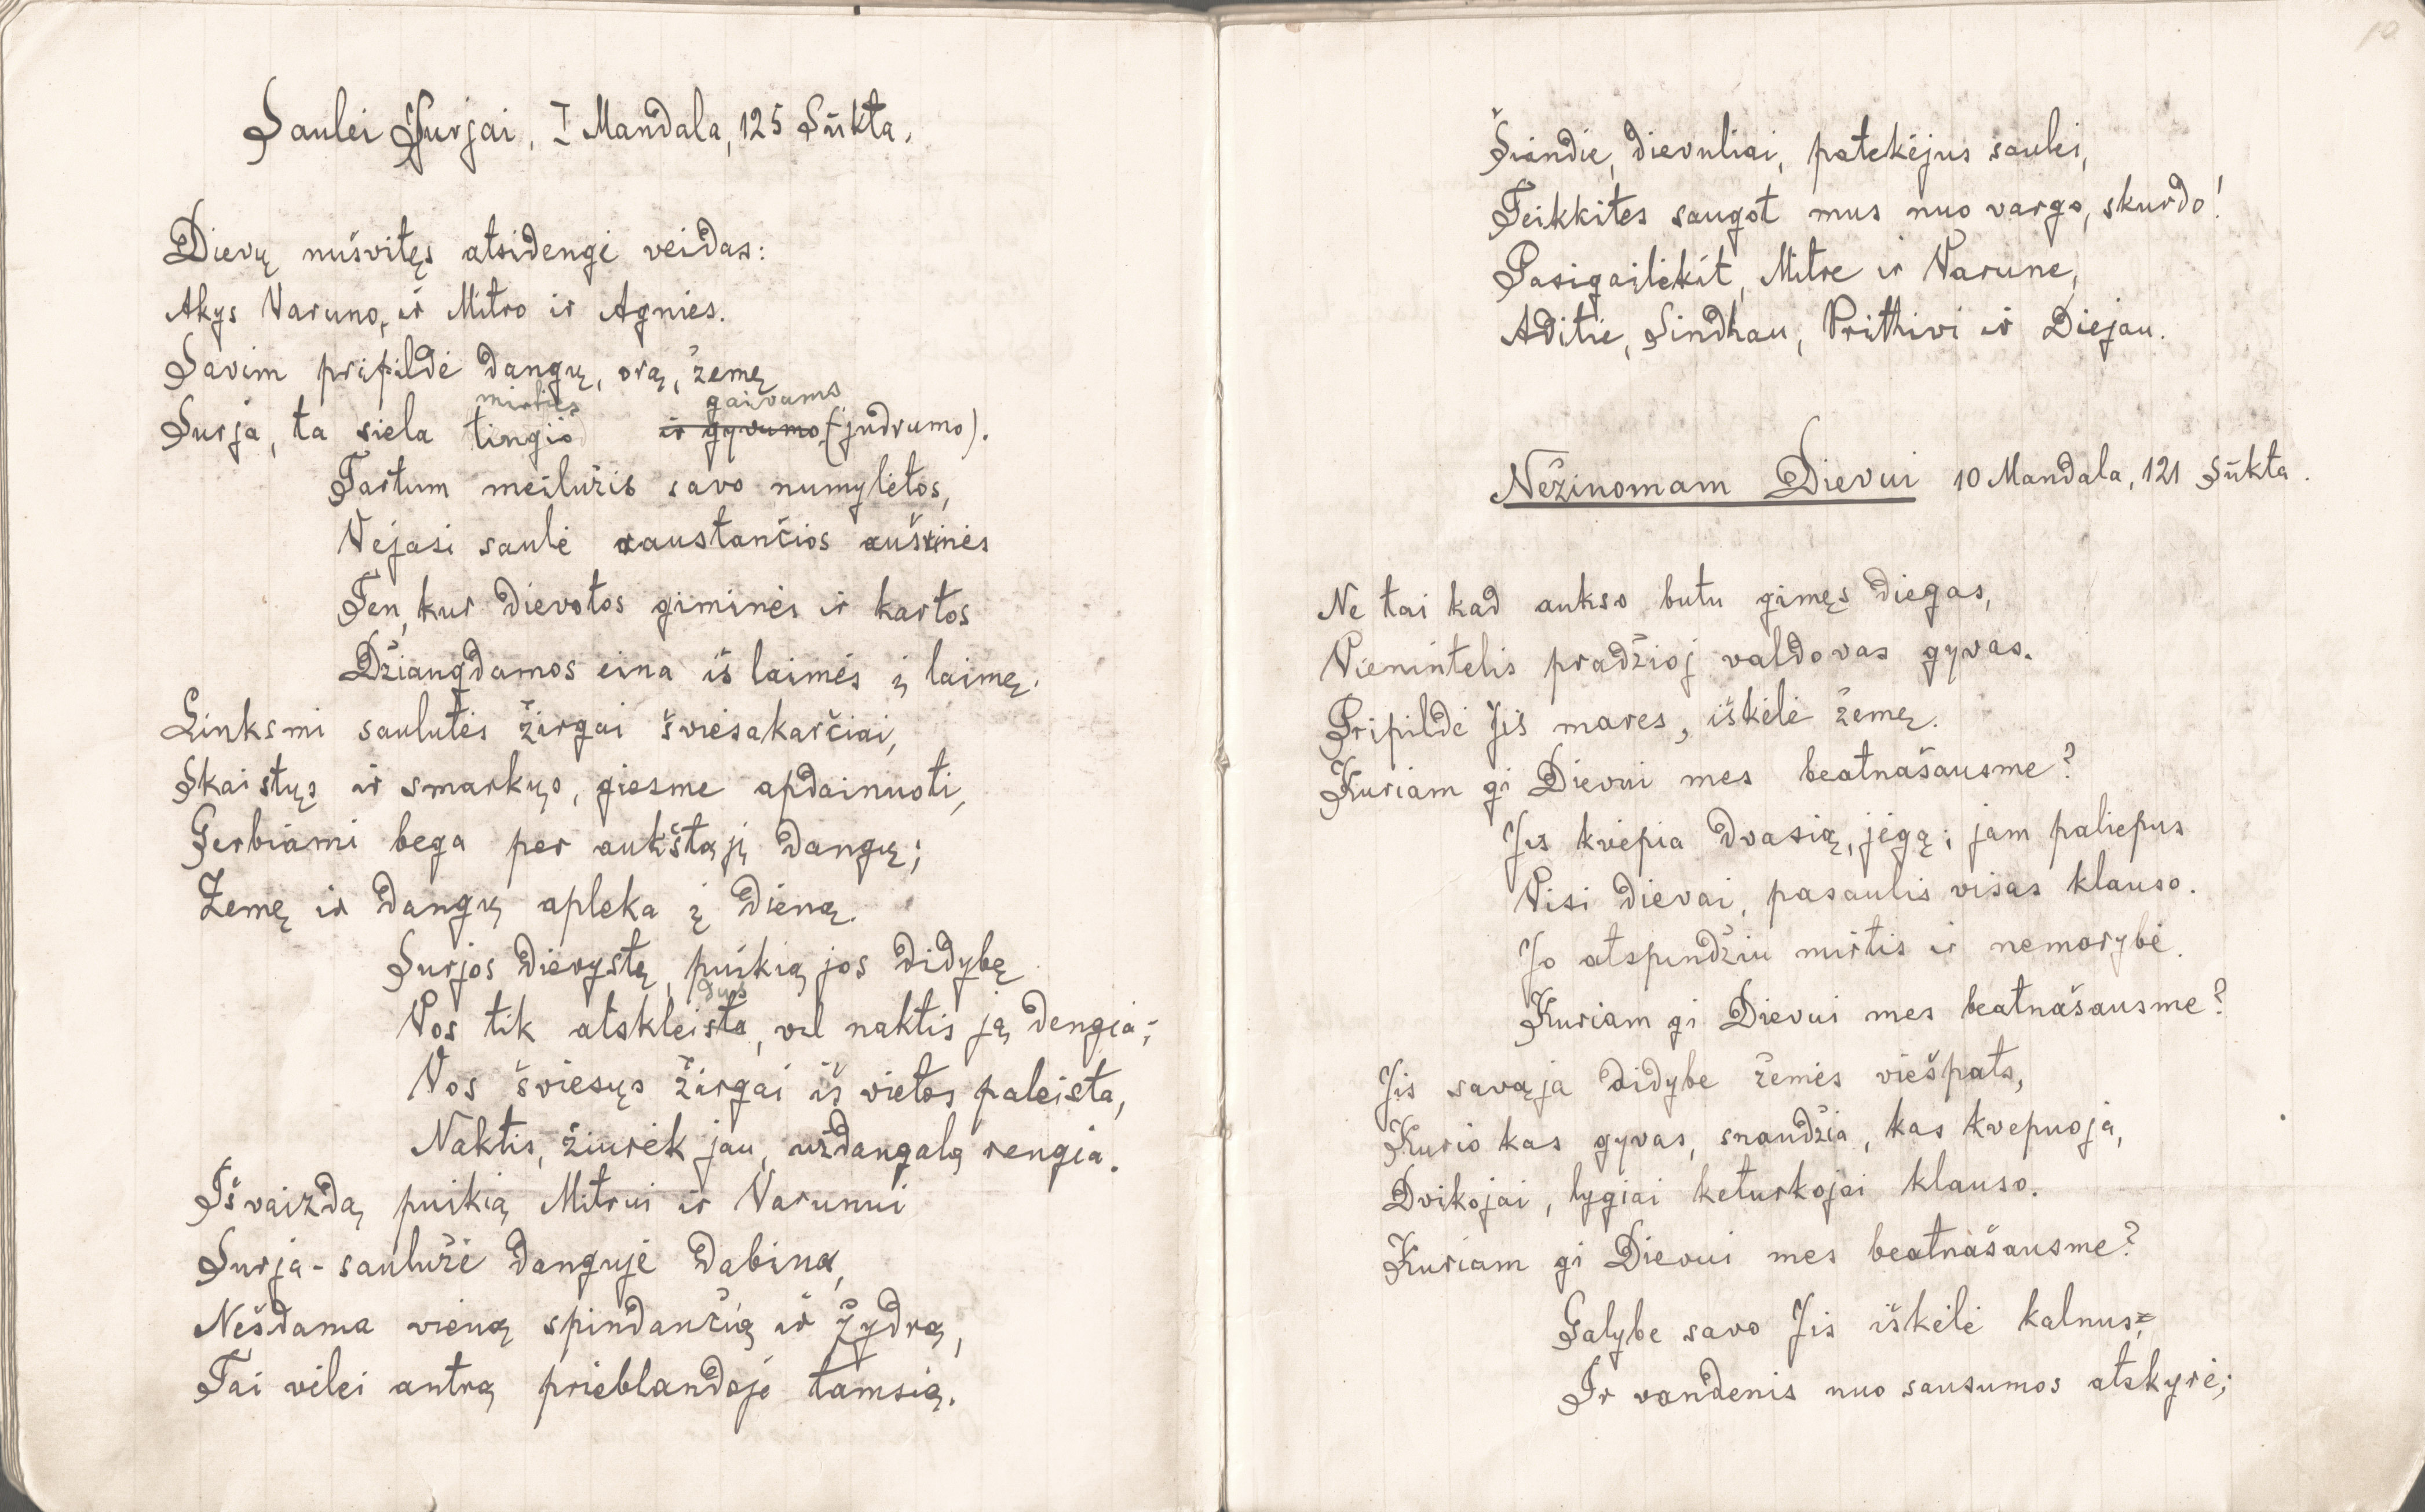 Saulei Surjai, I Mandala, 125 Sūkta.
Dievų nušvitęs atsidengė veidas:
Akys Varuno, ir Mitro ir Agnies.
Savim pripildė dangų, orą, žemę
mirties gaivumo
Surja, ta siela tingio ir gyvumo (judrumo).
Tartum meilužis savo numylėtos,
Vejasi saulė raustančios aušrinės
Ten, kur dievotos giminės ir kartos
Džiaugdamos eina iš laimės į laimę.
Linksmi saulutės žirgai šviesakarčiai,
Skaistųs ir smarkųs, giesme apdainuoti,
Gerbiami bega per aukštąjį dangų;
Žemę ir dangų apleka į dieną.
Surjos dievystę, puikią jos didybę
dus
Vos tik atskleista, vėl naktis ją dengia;
Vos šviesųs žirgai iš vietos paleista,
Naktis, žiurėk jau, uždangalą rengia.
Išvaizdą puikią Mitrui ir Varunui
Surja-saulužė danguje dabina,
Nešdama vieną spindančią ir žydrą,
Tai vėlei antrą prieblandoje tamsią.
10
Šiandie, dievuliai, patekėjus saulei,
Teikkitės saugot mus nuo vargo, skurdo!
Pasigailėkit, Mitre ir Varune,
Aditie, Sindhau, Prithivi ir Diejau.
Nežinomam Dievui 10 Mandala, 121 Sūkta.
Ne tai kad aukso butu gimęs diegas,
Vienintelis pradžioj valdovas gyvas.
Pripildė Jis mares, iškėlė žemę.
Kuriam gi Dievui mes beatnašausme?
Jis kvėpia dvasią, jėgą; jam paliepus
Visi dievai, pasaulis visas klauso.
Jo atspindžiu mirtis ir nemarybė.
Kuriam gi Dievui mes beatnašausme?
Jis savąja didybe žemės viešpats,
Kurio kas gyvas, snaudžia, kas kvepuoja,
Dvikojai, lygiai keturkojai klauso.
Kuriam gi Dievui mes beatnašausme?
Galybe savo Jis iškėlė kalnus,
Ir vandenis nuo sausumos atskyrė;